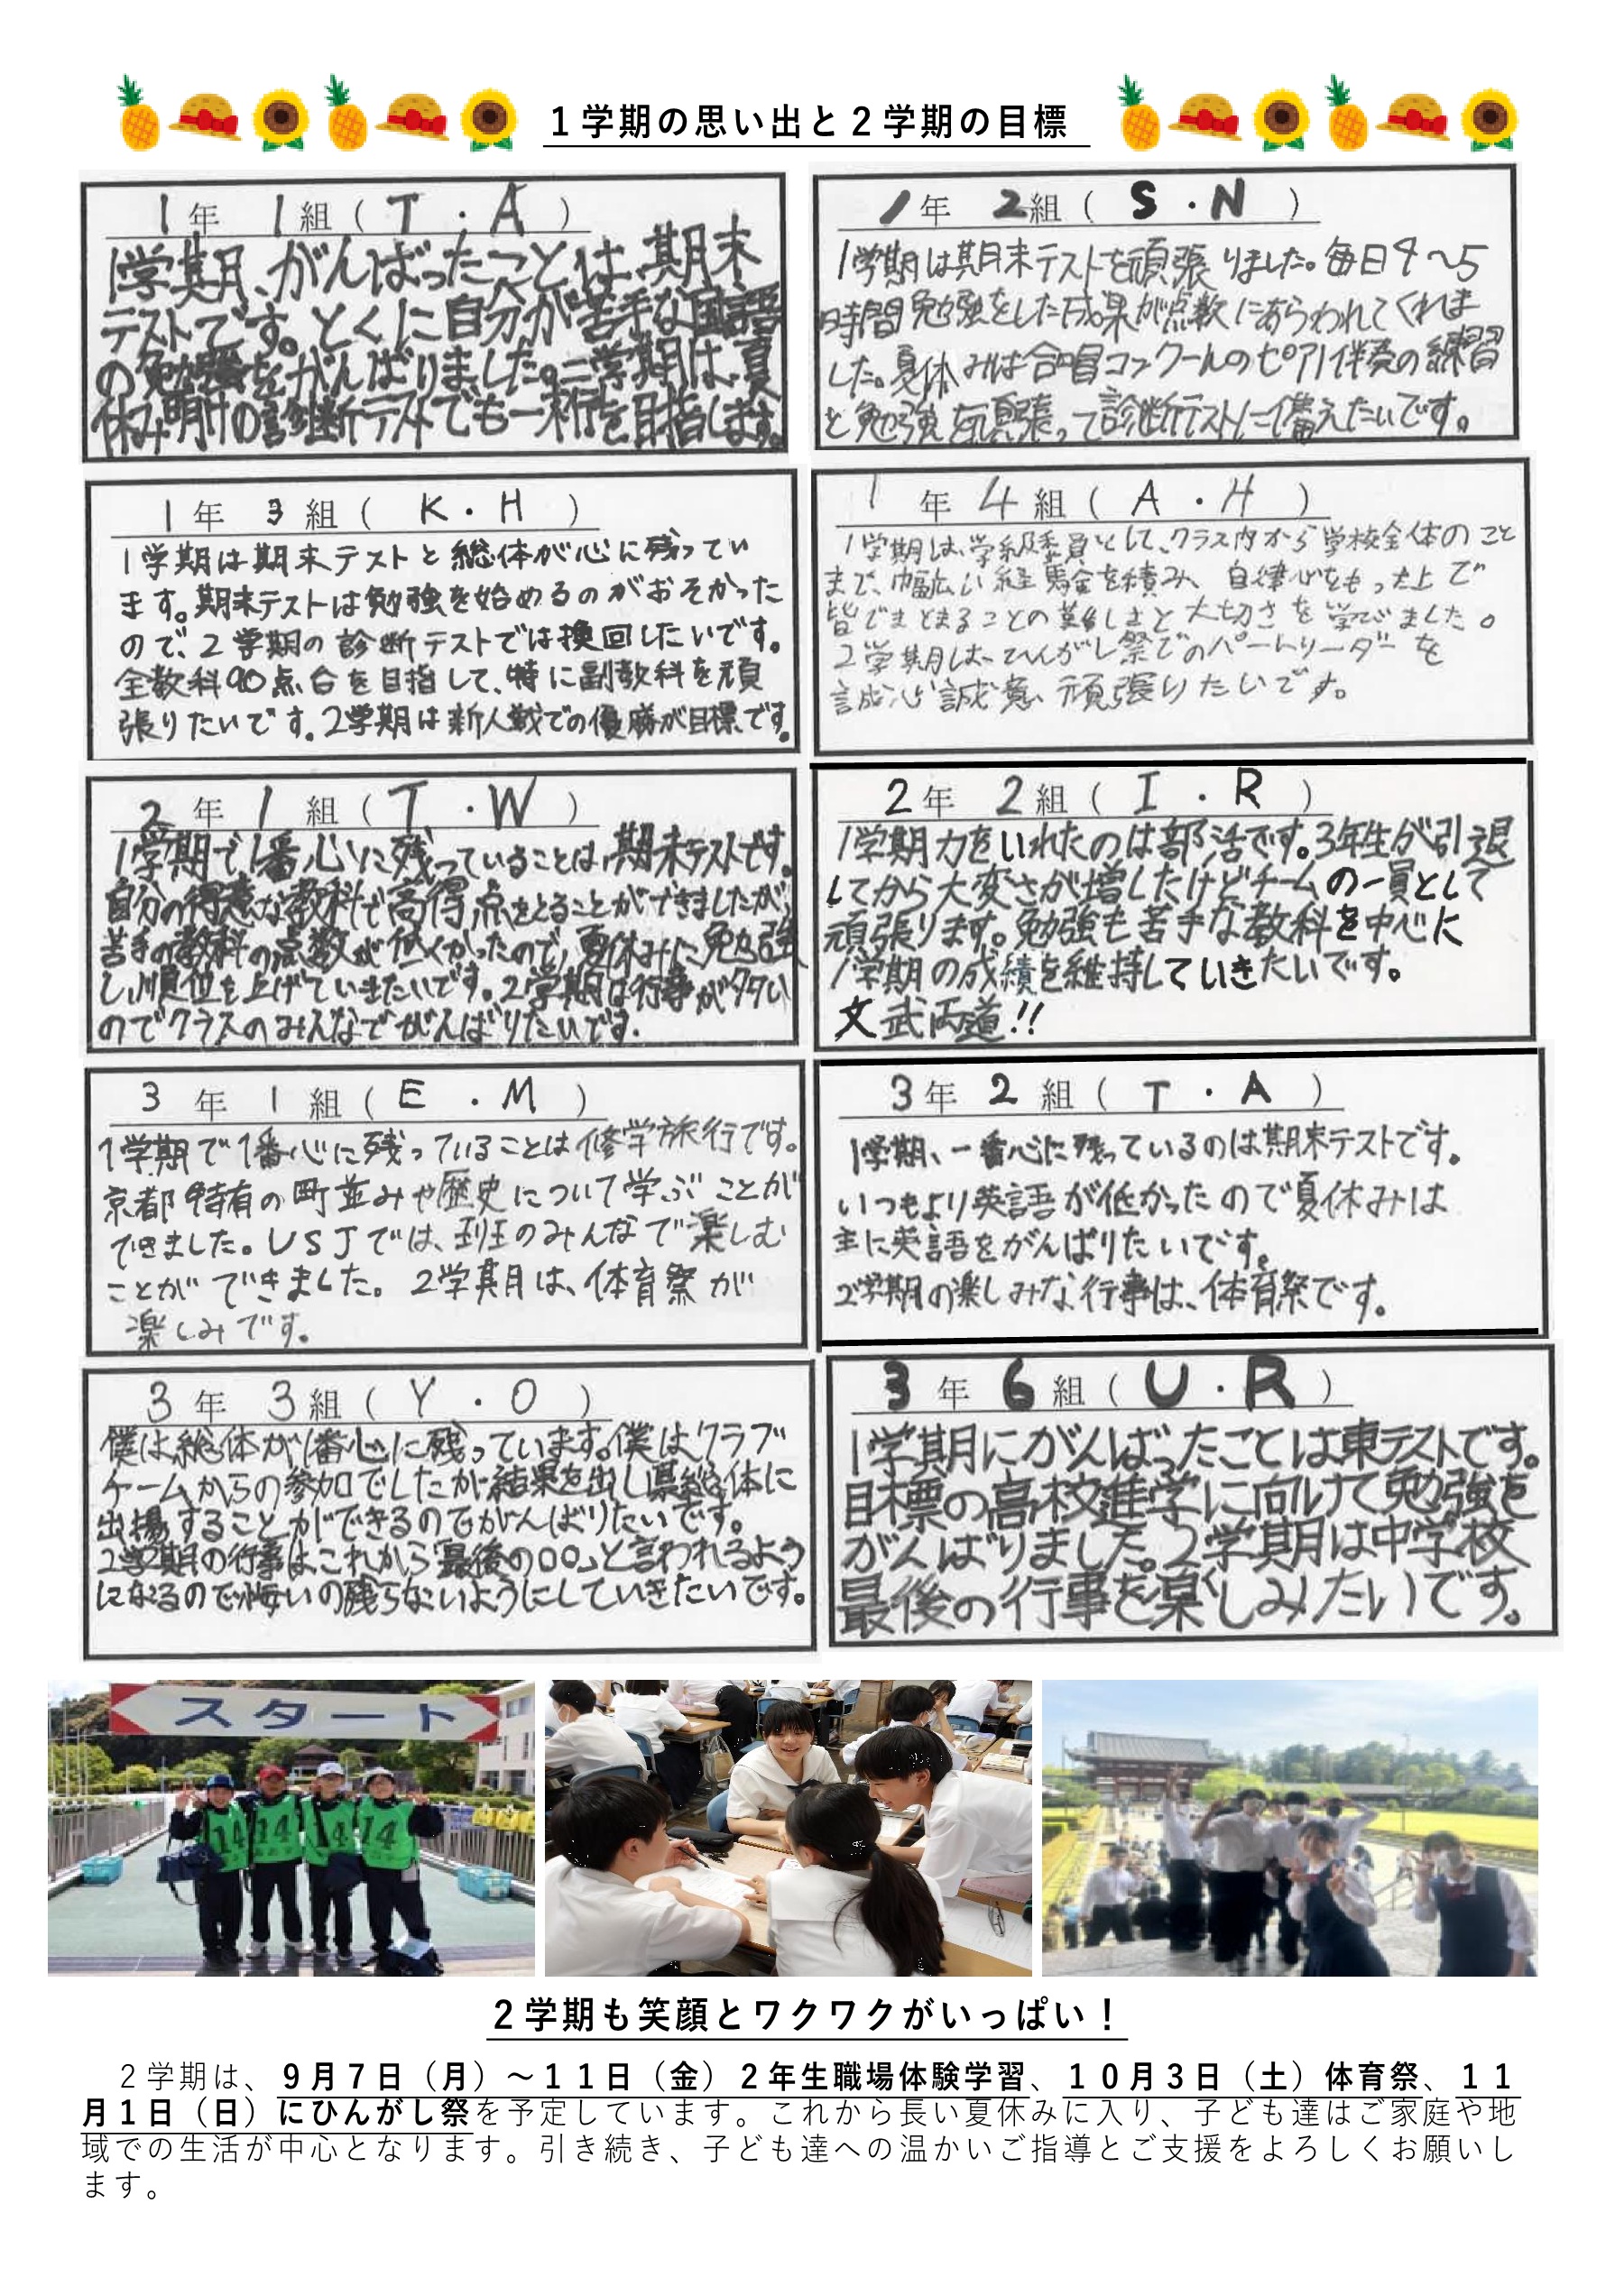 １学期の思い出と２学期の目標
1年 1組（ T ・ A ）
1学期、がんばったことは、期末
テストです。とくに自分が苦手な国語
の勉強をがんばりました。二学期は、夏
休み明けの診断テストでも一桁を目指します。
1年 2組（ S ・ N ）
1学期は期末テストを頑張りました。毎日4～5
時間勉強をした成果が点数にあらわれてくれま
した。夏休みは合唱コンクールのピアノ伴奏の練習
と勉強を頑張って診断テストに備えたいです。
1年 3組（ K・H ）
1学期は期末テストと総体が心に残ってい
ます。期末テストは勉強を始めるのがおそかった
ので、2学期の診断テストでは挽回したいです。
全教科90点台を目指して、特に副教科を頑
張りたいです。2学期は新人戦での優勝が目標です。
1年 4組（ A ・ H ）
1学期は、学級委員として、クラス内から学校全体のこと
まで、幅広い経験を積み、自律心をもった上で
皆でまとまることの難しさと大切さを学びました。
2学期は、ひんがし祭でのパートリーダーを
誠心誠意頑張りたいです。
2年 1組（ T ・W ）
1学期で1番心に残っていることは、期末テストです。
自分の得意な教科で高得点をとることができましたが、
苦手の教科の点数が低くかったので、夏休みに勉強
し、順位を上げていきたいです。2学期は行事が多い
のでクラスのみんなでがんばりたいです。
2年 2組（ I ・ R ）
1学期力をいれたのは部活です。3年生が引退
してから大変さが増したけどチームの一員として
頑張ります。勉強も苦手な教科を中心に
1学期の成績を維持していきたいです。
文武両道!!
3年 1組（ E ・M ）
1学期で1番心に残っていることは修学旅行です。
京都特有の町並みや歴史について学ぶことが
できました。USJでは、班のみんなで楽しむ
ことができました。2学期は、体育祭が
楽しみです。
3年 2組（ T ・ A ）
1学期、一番心に残っているのは期末テストです。
いつもより英語が低かったので夏休みは
主に英語をがんばりたいです。
2学期の楽しみな行事は、体育祭です。
3年 3組（ Y ・ O ）
僕は総体が1番心に残っています。僕はクラブ
チームからの参加でしたが結果を出し県総体に
出場することができるのでがんばりたいです。
2学期の行事はこれから「最後の○○」と言われるよう
になるので悔いの残らないようにしていきたいです。
3年 6組（ U ・ R ）
1学期にがんばったことは東テストです。
目標の高校進学に向けて勉強を
がんばりました。2学期は中学校
最後の行事を楽しみたいです。
スタート
14 14 14 14
２学期も笑顔とワクワクがいっぱい！
２学期は、９月７日（月）～１１日（金）２年生職場体験学習、１０月３日（土）体育祭、１１
月１日（日）にひんがし祭を予定しています。これから長い夏休みに入り、子ども達はご家庭や地
域での生活が中心となります。引き続き、子ども達への温かいご指導とご支援をよろしくお願いし
ます。